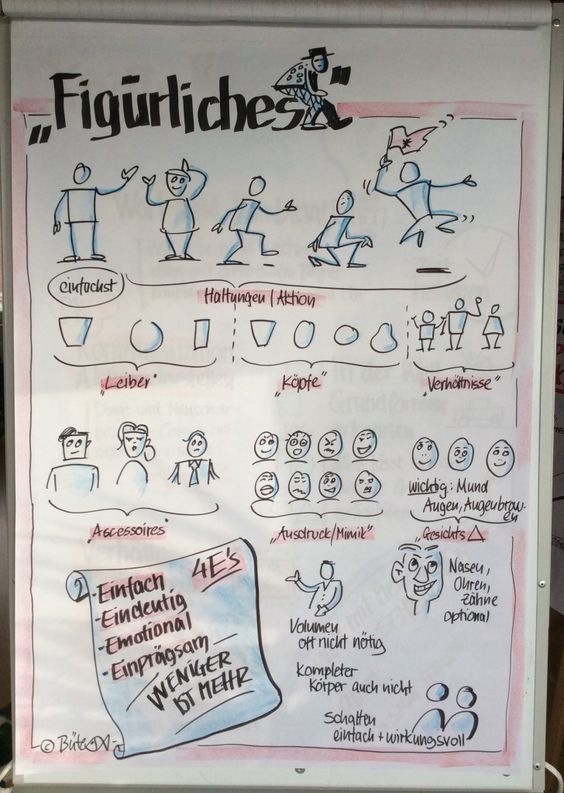 „Figürliches"
einfachst
Haltungen / Aktion
„Leiber"
„Köpfe"
„Verhältnisse"
Accessoires"
„Ausdruck/Mimik"
„Gesichts △
wichtig: Mund
Augen, Augenbrauen
Nasen,
Ohren,
Zähne
optional
Volumen
oft nicht nötig
Kompleter
Körper auch nicht
Schatten
einfach + wirkungsvoll
4E's
- Einfach
- Eindeutig
- Emotional
- Einprägsam
WENIGER
IST MEHR